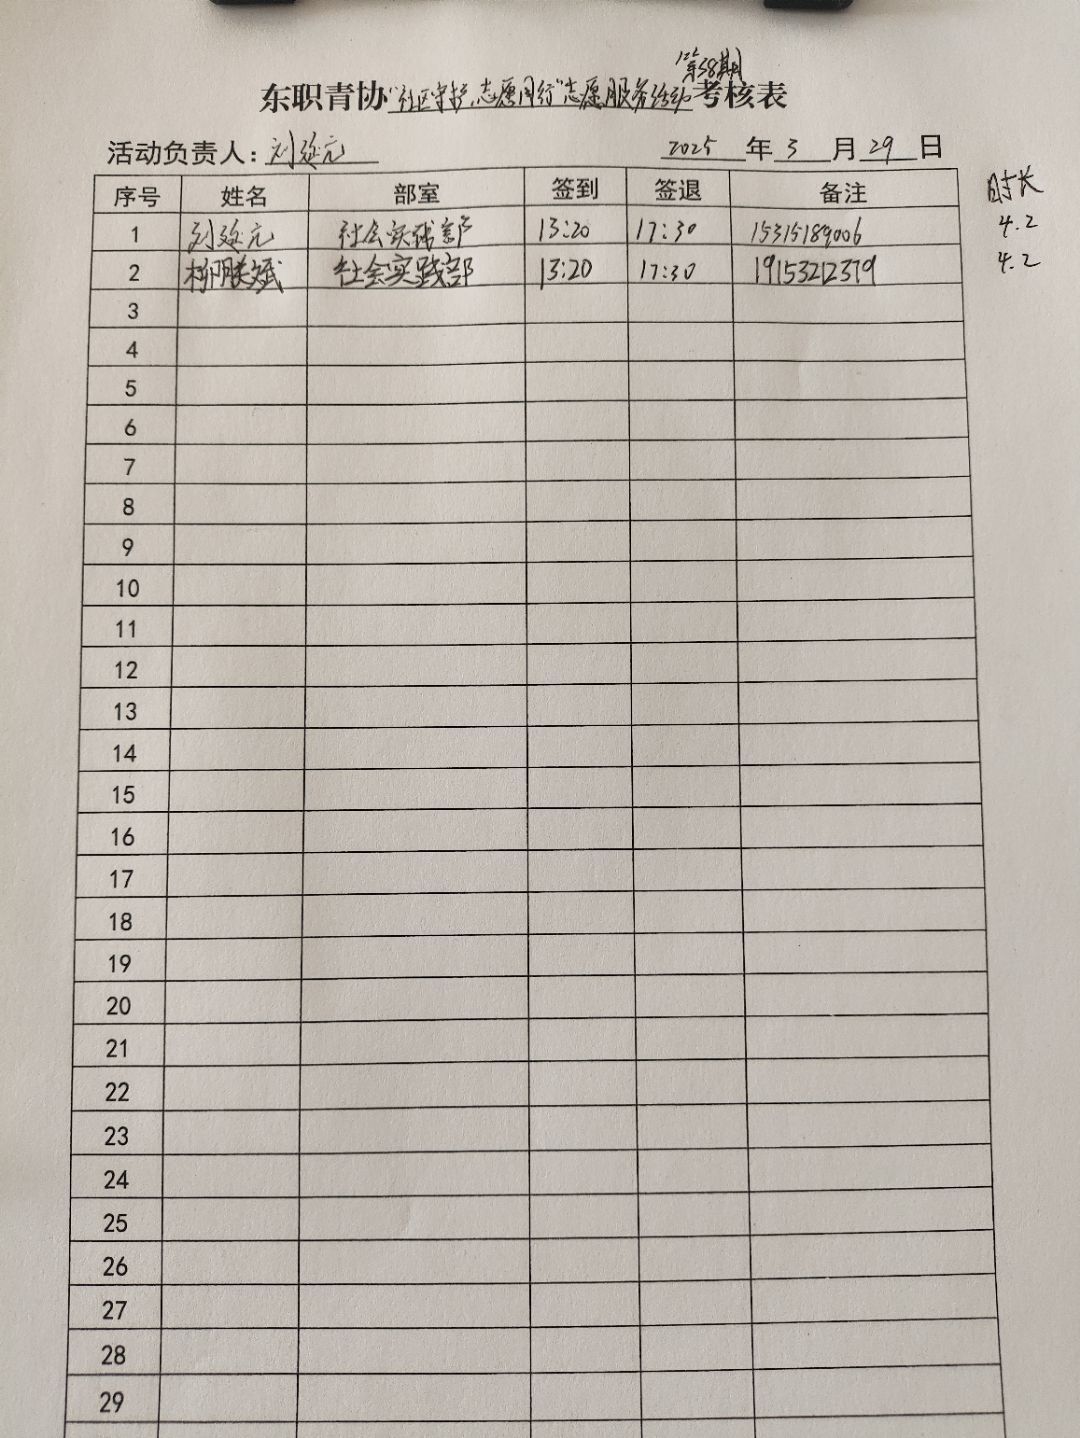 第58期
东职青协“社区守护,志愿同行”志愿服务活动考核表
活动负责人：刘延元 2025年3月29日
序号 姓名 部室 签到 签退 备注 时长
1 刘延元 社会实践部 13:20 17:30 15315189006 4.2
2 社会实践部 13:20 17:30 19153212379 4.2
3
4
5
6
7
8
9
10
11
12
13
14
15
16
17
18
19
20
21
22
23
24
25
26
27
28
29